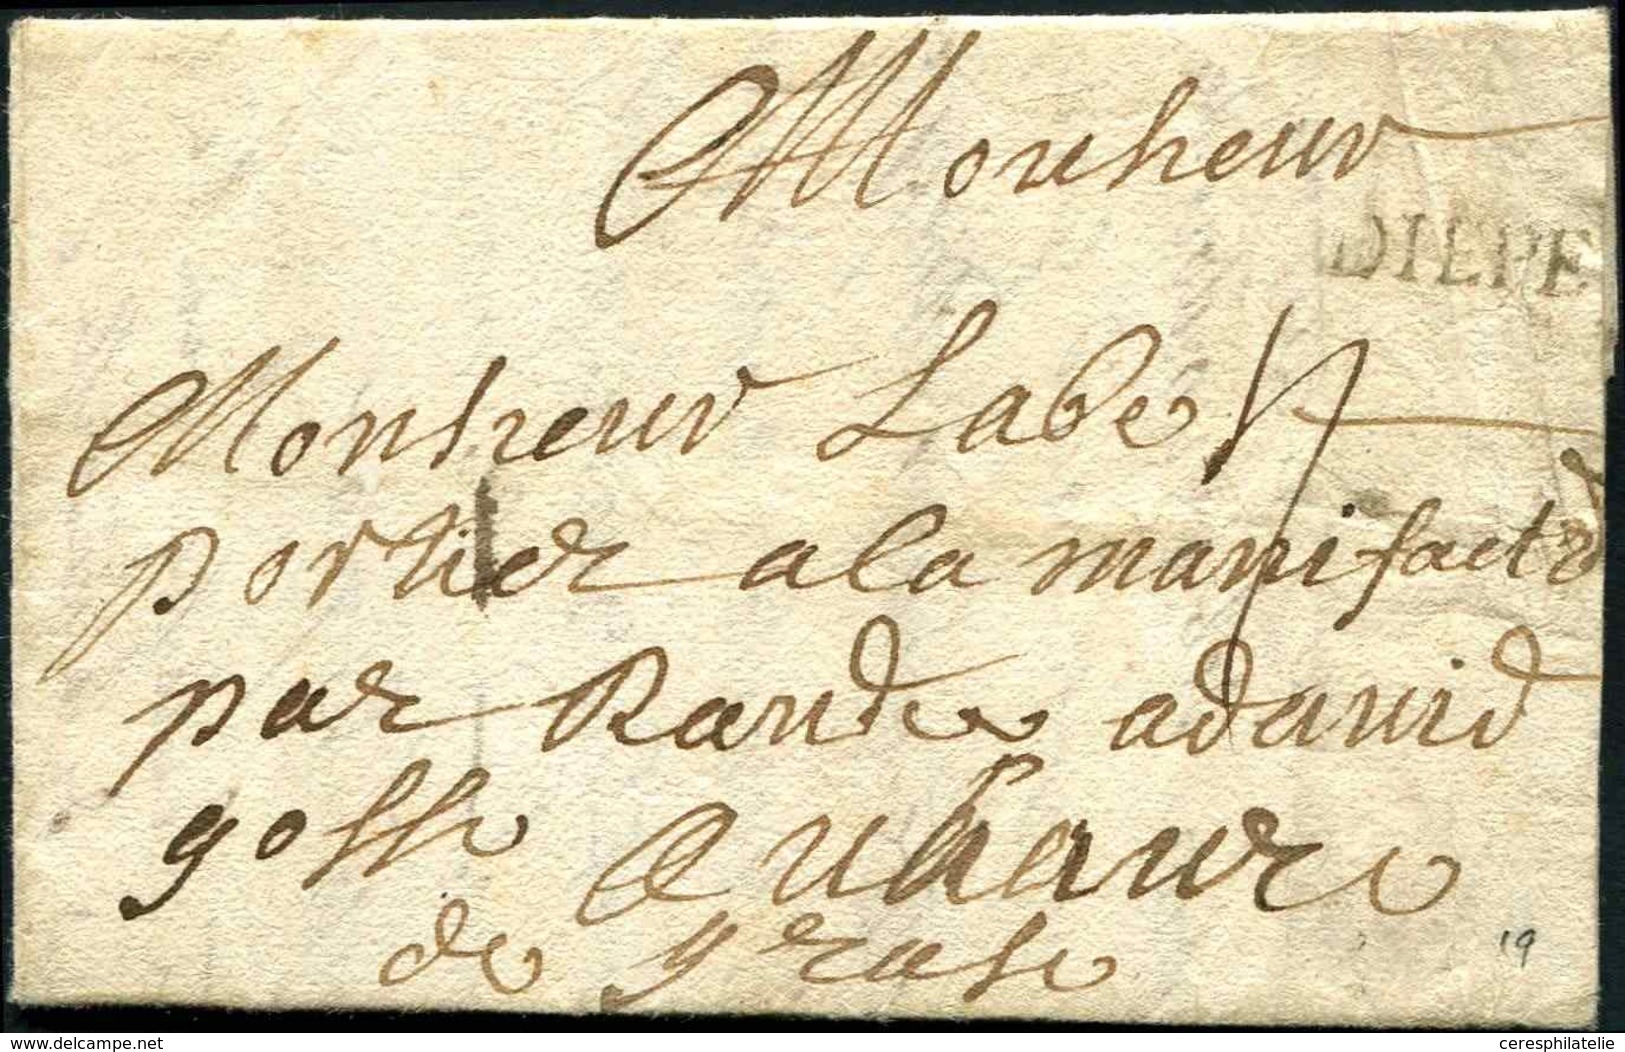 Monsieur
DIEPE
Monsieur Labe
portier a la manifact
par Rande adavid
gosse au havre
de grase
19
www.delcampe.net
ceresphilatelie